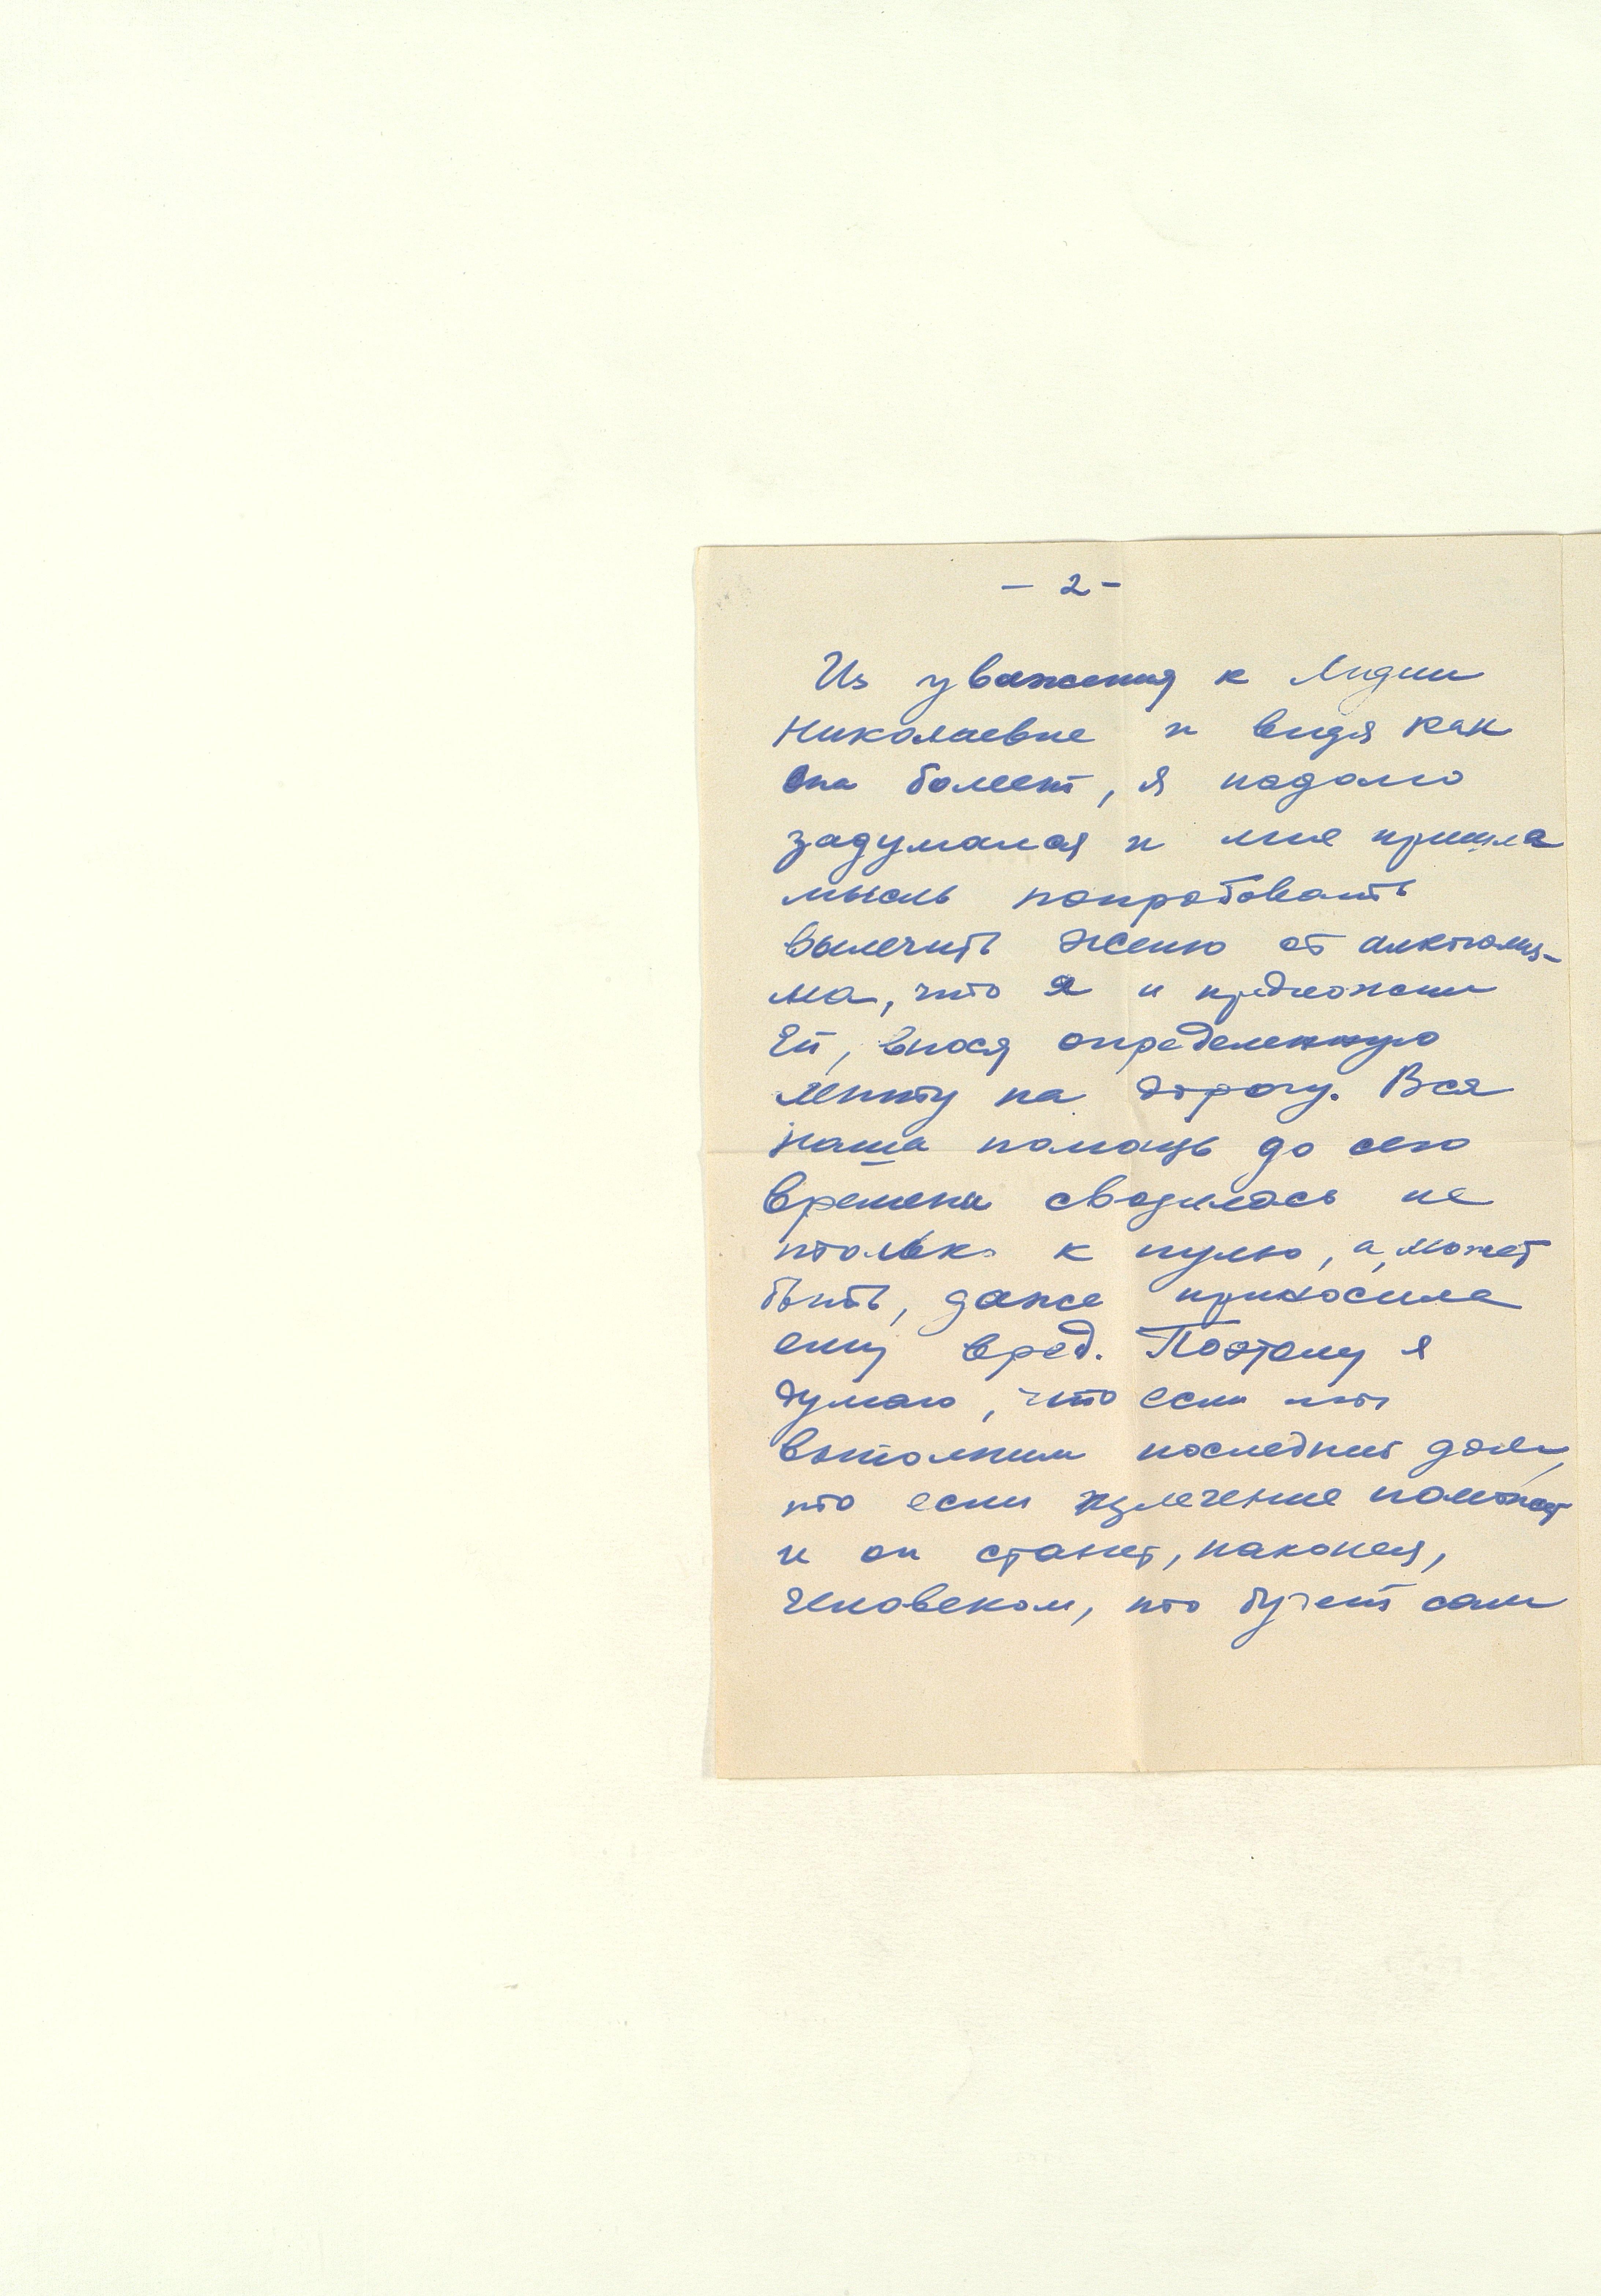 - 2 -
Из уважения к Лидии
Николаевне и видя как
она болеет, я надолго
задумался и мне пришла
мысль попробовать
вылечить Женю от алкоголиз-
ма, что я и предложил
Ей, внося определенную
лепту на дорогу. Вся
наша помощь до сего
времени сводилась не
только к нулю, а, может
быть, даже приносила
ему вред. Поэтому я
думаю, что если мы
выполним последний долг,
то если излечение поможет
и он станет, наконец,
человеком, то будет сам